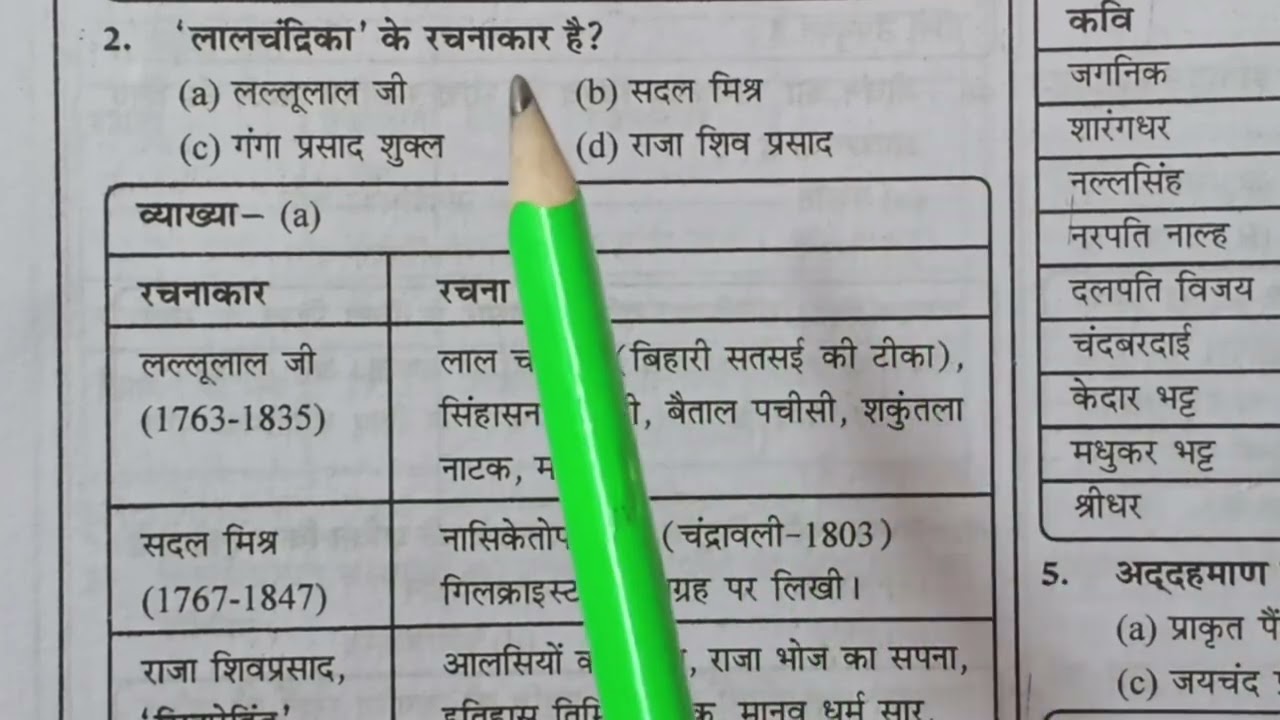 2. 'लालचंद्रिका' के रचनाकार है?
(a) लल्लूलाल जी (b) सदल मिश्र
(c) गंगा प्रसाद शुक्ल (d) राजा शिव प्रसाद
व्याख्या– (a)
रचनाकार रचना
लल्लूलाल जी लाल (बिहारी सतसई की टीका),
(1763-1835) सिंहासन बैताल पचीसी, शकुंतला
नाटक,
सदल मिश्र (चंद्रावली-1803)
(1767-1847) पर लिखी।
राजा शिवप्रसाद, आलसियों राजा भोज का सपना,
मानव धर्म सार,
कवि
जगनिक
शारंगधर
नल्लसिंह
नरपति नाल्ह
दलपति विजय
चंदबरदाई
केदार भट्ट
मधुकर भट्ट
श्रीधर
5. अद्दहमाण
(a) प्राकृत
(c) जयचंद